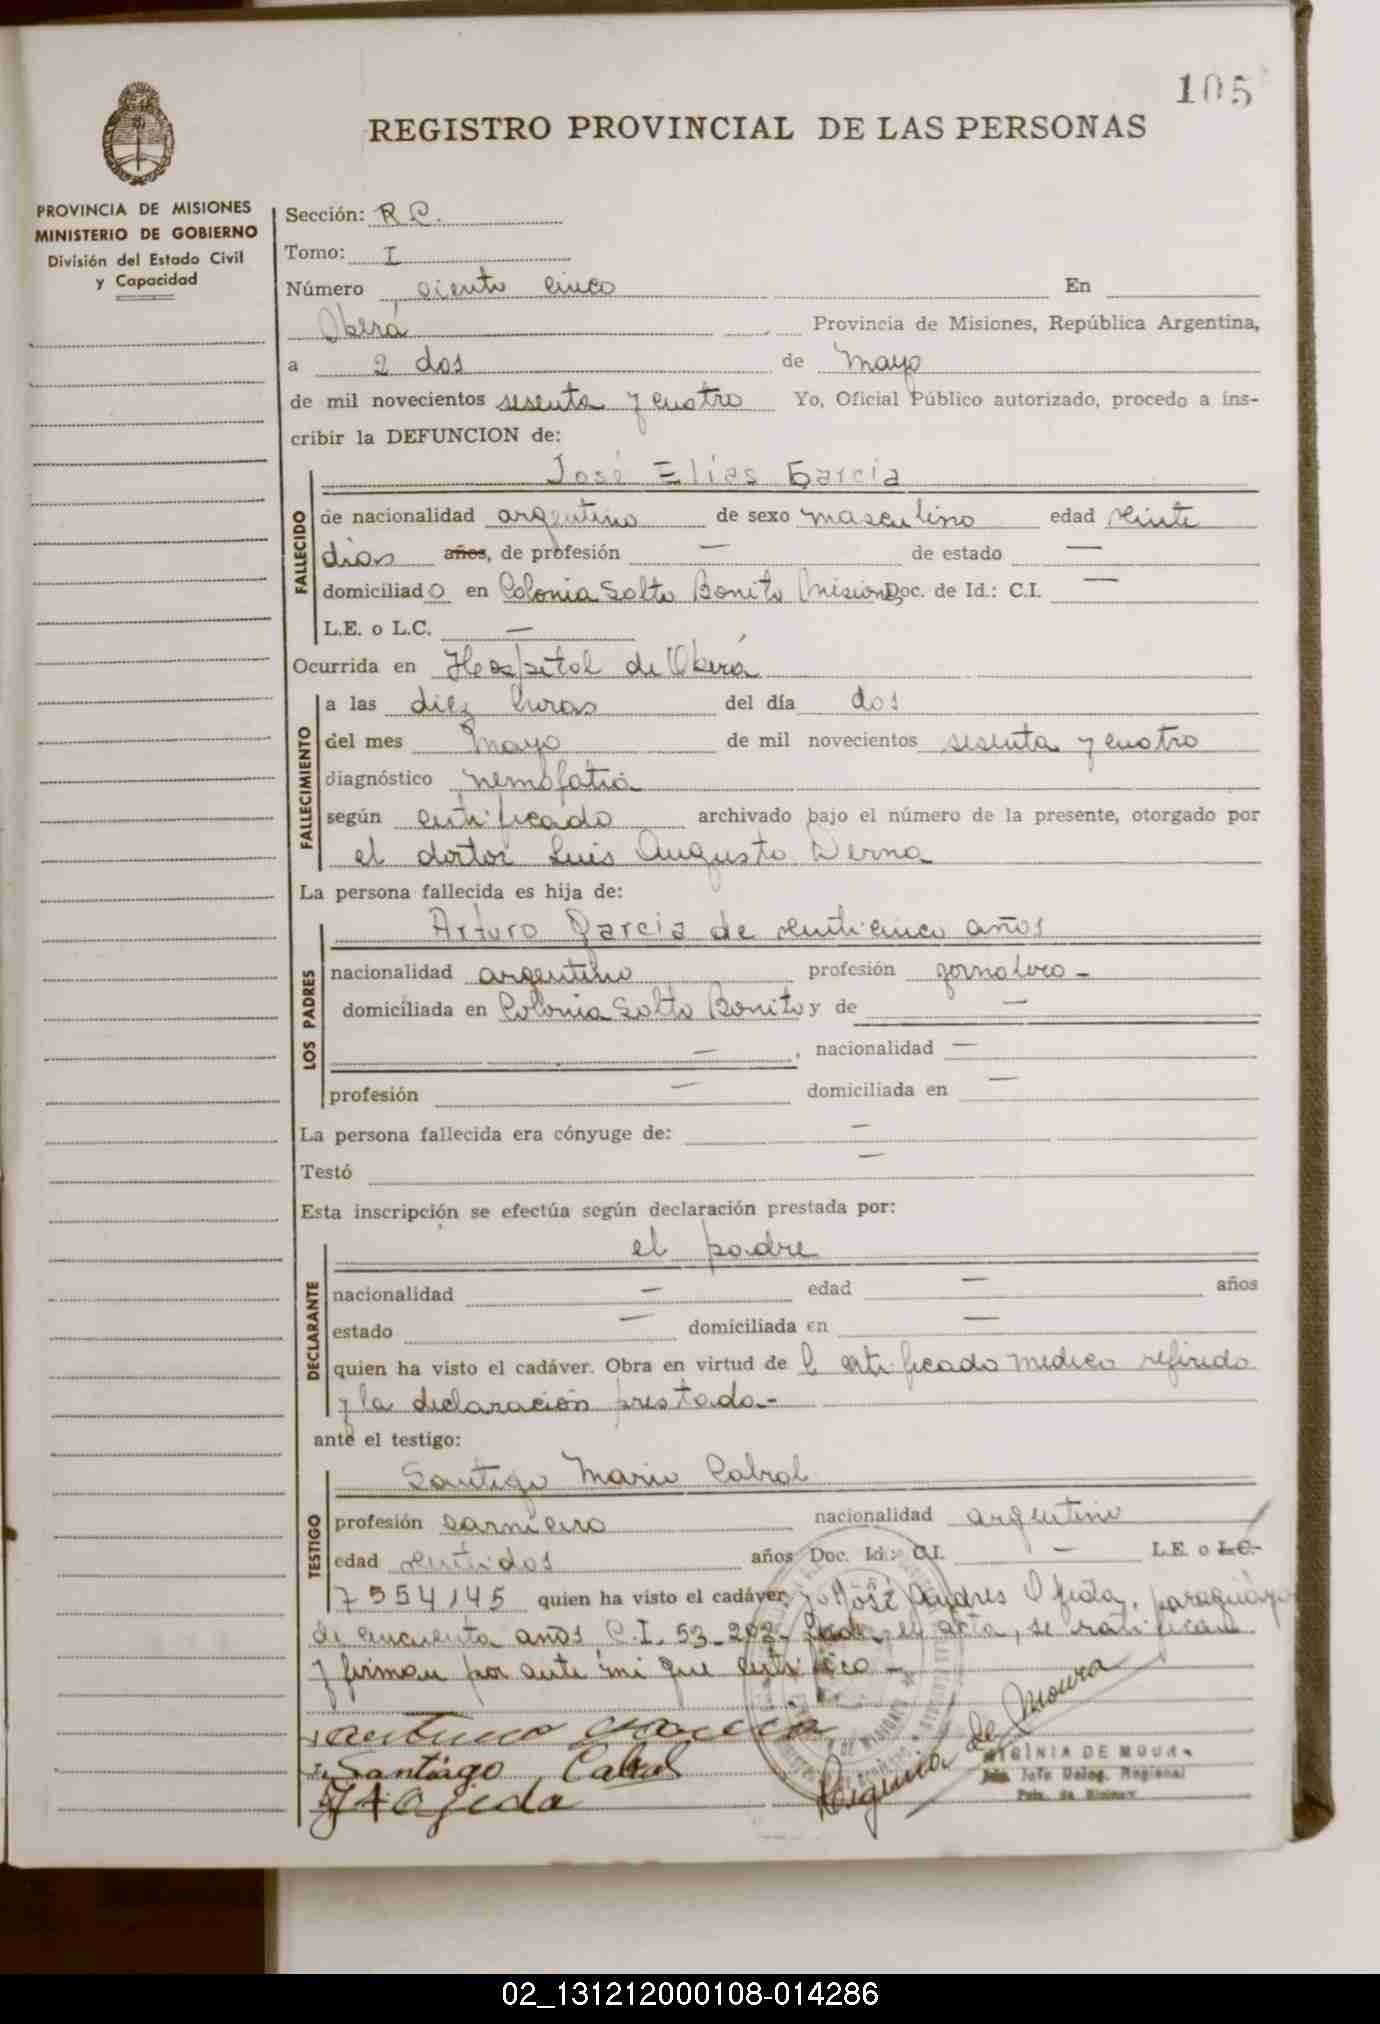 105
REGISTRO PROVINCIAL DE LAS PERSONAS
PROVINCIA DE MISIONES
MINISTERIO DE GOBIERNO
División del Estado Civil
y Capacidad
Sección: R C.
Tomo: I
Número ciento cinco En
Oberá Provincia de Misiones, República Argentina,
a 2 dos de mayo
de mil novecientos sesenta y cuatro Yo, Oficial Público autorizado, procedo a ins-
cribir la DEFUNCION de:
José Elías Garcia
FALLECIDO
de nacionalidad argentino de sexo masculino edad veinte
dias años, de profesión — de estado —
domiciliado en Colonia Salto Bonito Misiones Doc. de Id.: C.I. —
L.E. o L.C. —
Ocurrida en Hospital de Oberá
FALLECIMIENTO
a las diez horas del día dos
del mes mayo de mil novecientos sesenta y cuatro
diagnóstico
según certificado archivado bajo el número de la presente, otorgado por
el doctor Luis Augusto Derna
La persona fallecida es hija de:
LOS PADRES
Arturo Garcia de veinticinco años
nacionalidad argentino profesión jornalero -
domiciliada en Colonia Salto Bonito y de —
— , nacionalidad —
profesión — domiciliada en —
La persona fallecida era cónyuge de: —
Testó —
Esta inscripción se efectúa según declaración prestada por:
DECLARANTE
el padre
nacionalidad — edad — años
estado — domiciliada en —
quien ha visto el cadáver. Obra en virtud de l certificado medico referido
y la declaración prestada.-
ante el testigo:
TESTIGO
Santigo Mario Cabral
profesión carnicero nacionalidad argentino
edad veintidos años Doc. Id.: C.I. — L.E. o L.C.
7554145 quien ha visto el cadáver, y José Andres Ojeda, paraguayo
de cincuenta años C.I. 53-202- el acta, se ratifican
y firman por ante mi que certifico -
Arturo Garcia
Santiago Cabral
J A Ojeda
Higinia de Moura
HIGINIA DE MOURA
Jefe Deleg. Regional
02_131212000108-014286